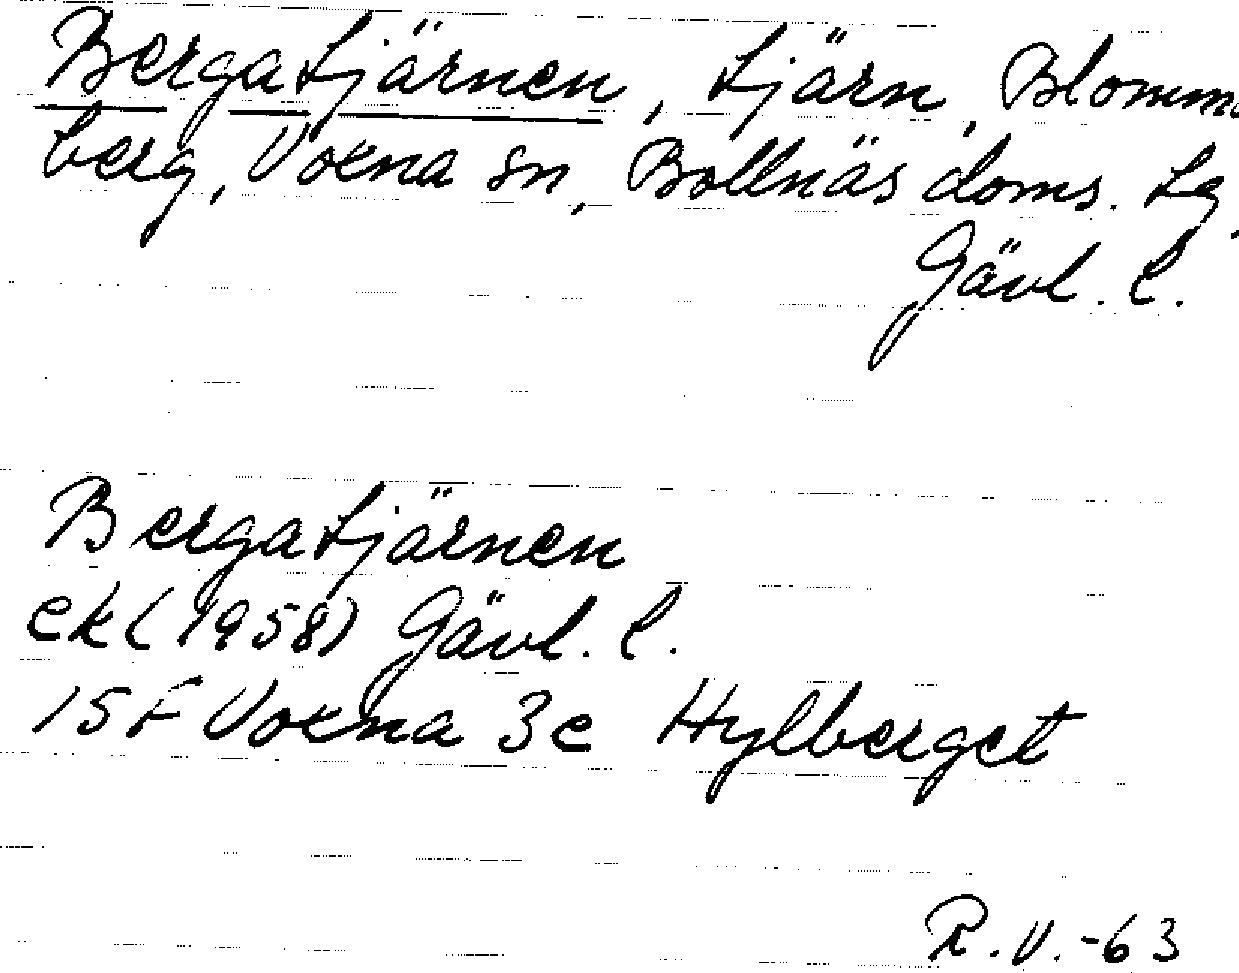 Bergatjärnen, tjärn, Blomm
berg, Voxna sn, Bollnäs doms. lg,
Gävl. l.
Bergatjärnen
ek (1958) Gävl. l.
15 F Voxna 3c Hylberget
R.V.-63